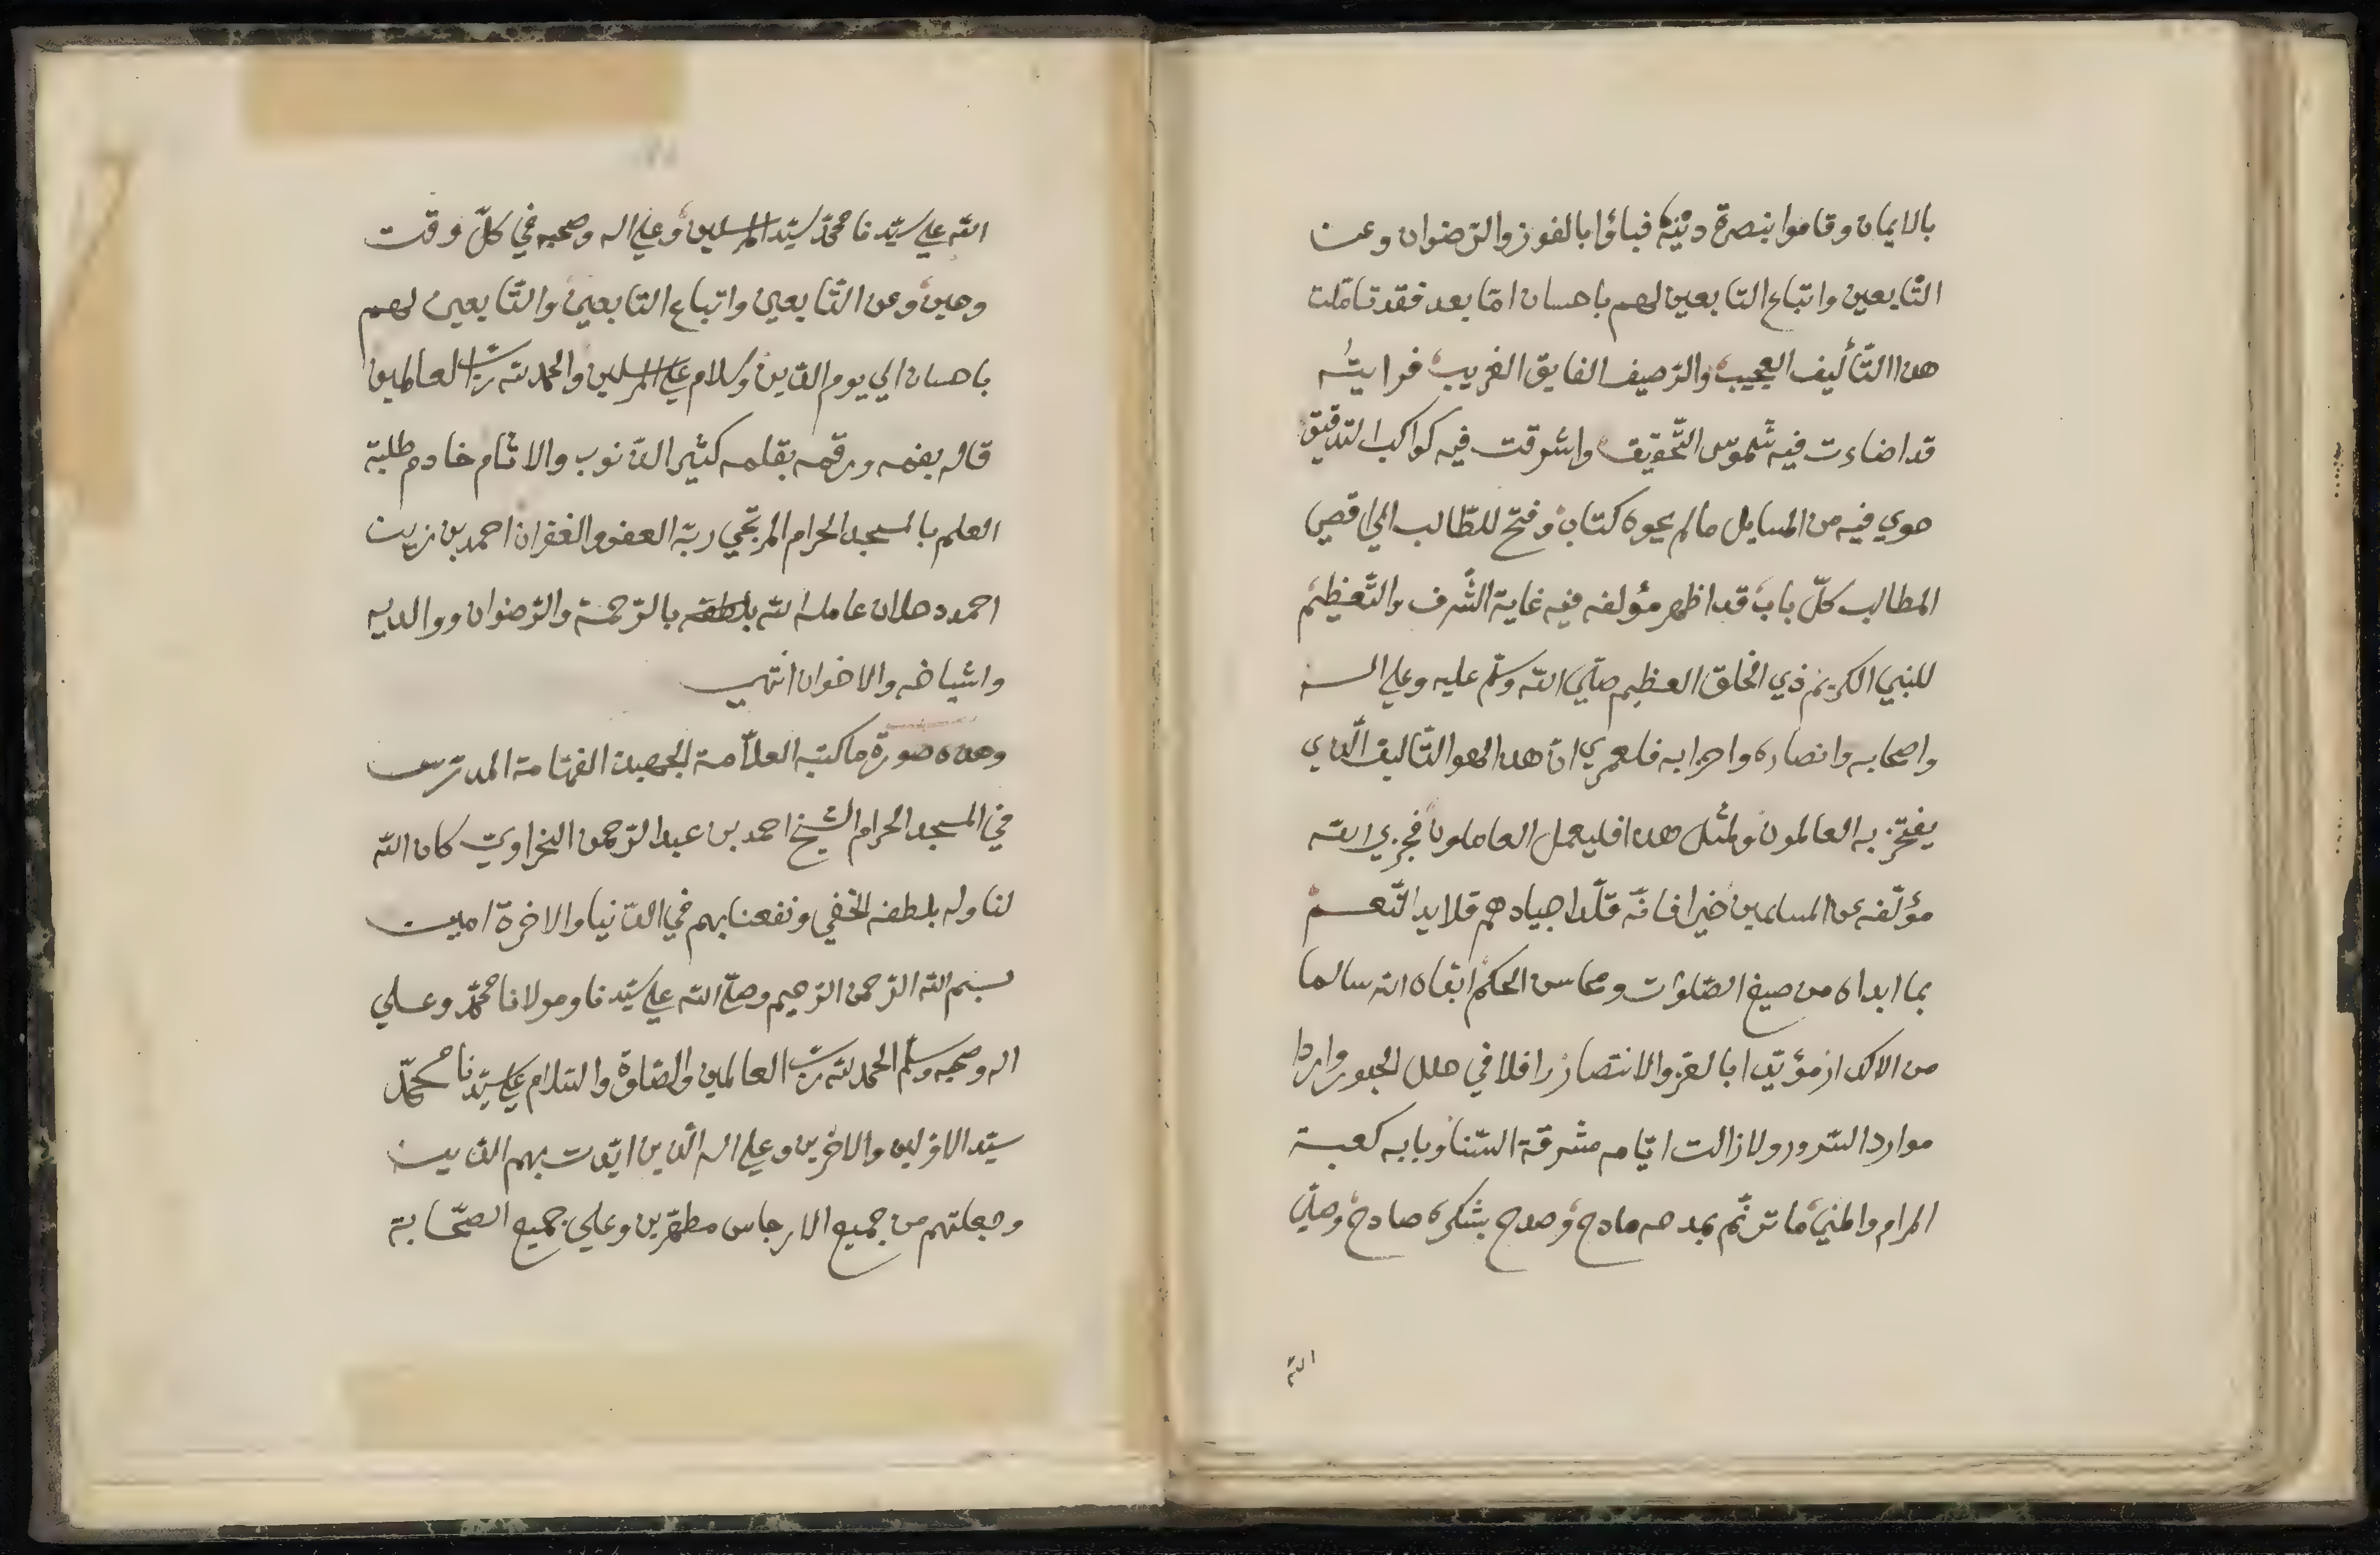 بالايمان وقاموا بنصرة دينه فباؤا بالفوز والرّضوان وعن
التّابعين واتباع التابعين لهم باحسان امّا بعد فقد تاملت
هذا التّأليف العجيب والترصيف الفايق الغريب فرايته
قد اضاءت فيه شموس التّحقيق واشرقت فيه كواكب التدقيق
حوي فيه من المسايل ما لم يحوه كتاب وفتح للطّالب الي اقصي
المطالب كلّ باب قد اظهر مؤلفه فيه غاية الشّرف والتّعظيم
للنبي الكريم ذي الخلق العظيم صلّي اللّه وسلّم عليه وعلي اله
واصحابه وانصاره واحزابه فلعمري انّ هذا لهو التّاليف الّذي
يفتخر به العالمون ولمثل هذا فليعمل العاملون فجزي اللّه
مؤلّفه عن المسلمين خيرا فانّه قلّد اجيادهم قلايد النّعم
بما ابداه من صيغ الصّلوات ومحاسن الحكم ابقاه الله سالما
من الاكدار مؤيّدا بالعزّ والانتصار رافلا في حلل الحبور واردا
موارد السّرور ولا زالت ايّامه مشرقة السّنا وبابه كعبة
المرام والمني ما ترنّم بمدحه مادح وصدح بشكره صادح وصلّي
اللّه
اللّه علي سيّدنا محمّد سيّد المرسلين وعلي اله وصحبه في كلّ وقت
وحين وعن التّابعين واتباع التابعين والتّابعين لهم
باحسان الي يوم الدّين وسلام علي المرسلين والحمد للّه ربّ العالمين
قاله بفمه ورقمه بقلمه كثير الذّنوب والاثام خادم طلبة
العلم بالمسجد الحرام المرتجي ربّه العفو والغفران احمد بن زين
احمد دحلان عامله اللّه بلطفه بالرّحمة والرّضوان ووالديه
واشياخه والاخوان انتهي
وهذه صورة ما كتبه العلّامة الجهبذ الفهّامة المدرّس
في المسجد الحرام الشيخ احمد بن عبد الرّحمن النحراويّ كان اللّه
لنا وله بلطفه الخفي ونفعنا بهم في الدّنيا والاخرة امين
بسم اللّه الرّحمن الرّحيم وصلّي اللّه علي سيّدنا ومولانا محمّد وعلي
اله وصحبه وسلّم الحمد للّه ربّ العالمين والصّلوة والسّلام علي سيّدنا محمّد
سيّد الاوّلين والاخرين وعلي اله الّذين ايّدت بهم الدّين
وجعلتهم من جميع الارجاس مطهّرين وعلي جميع الصّحابة